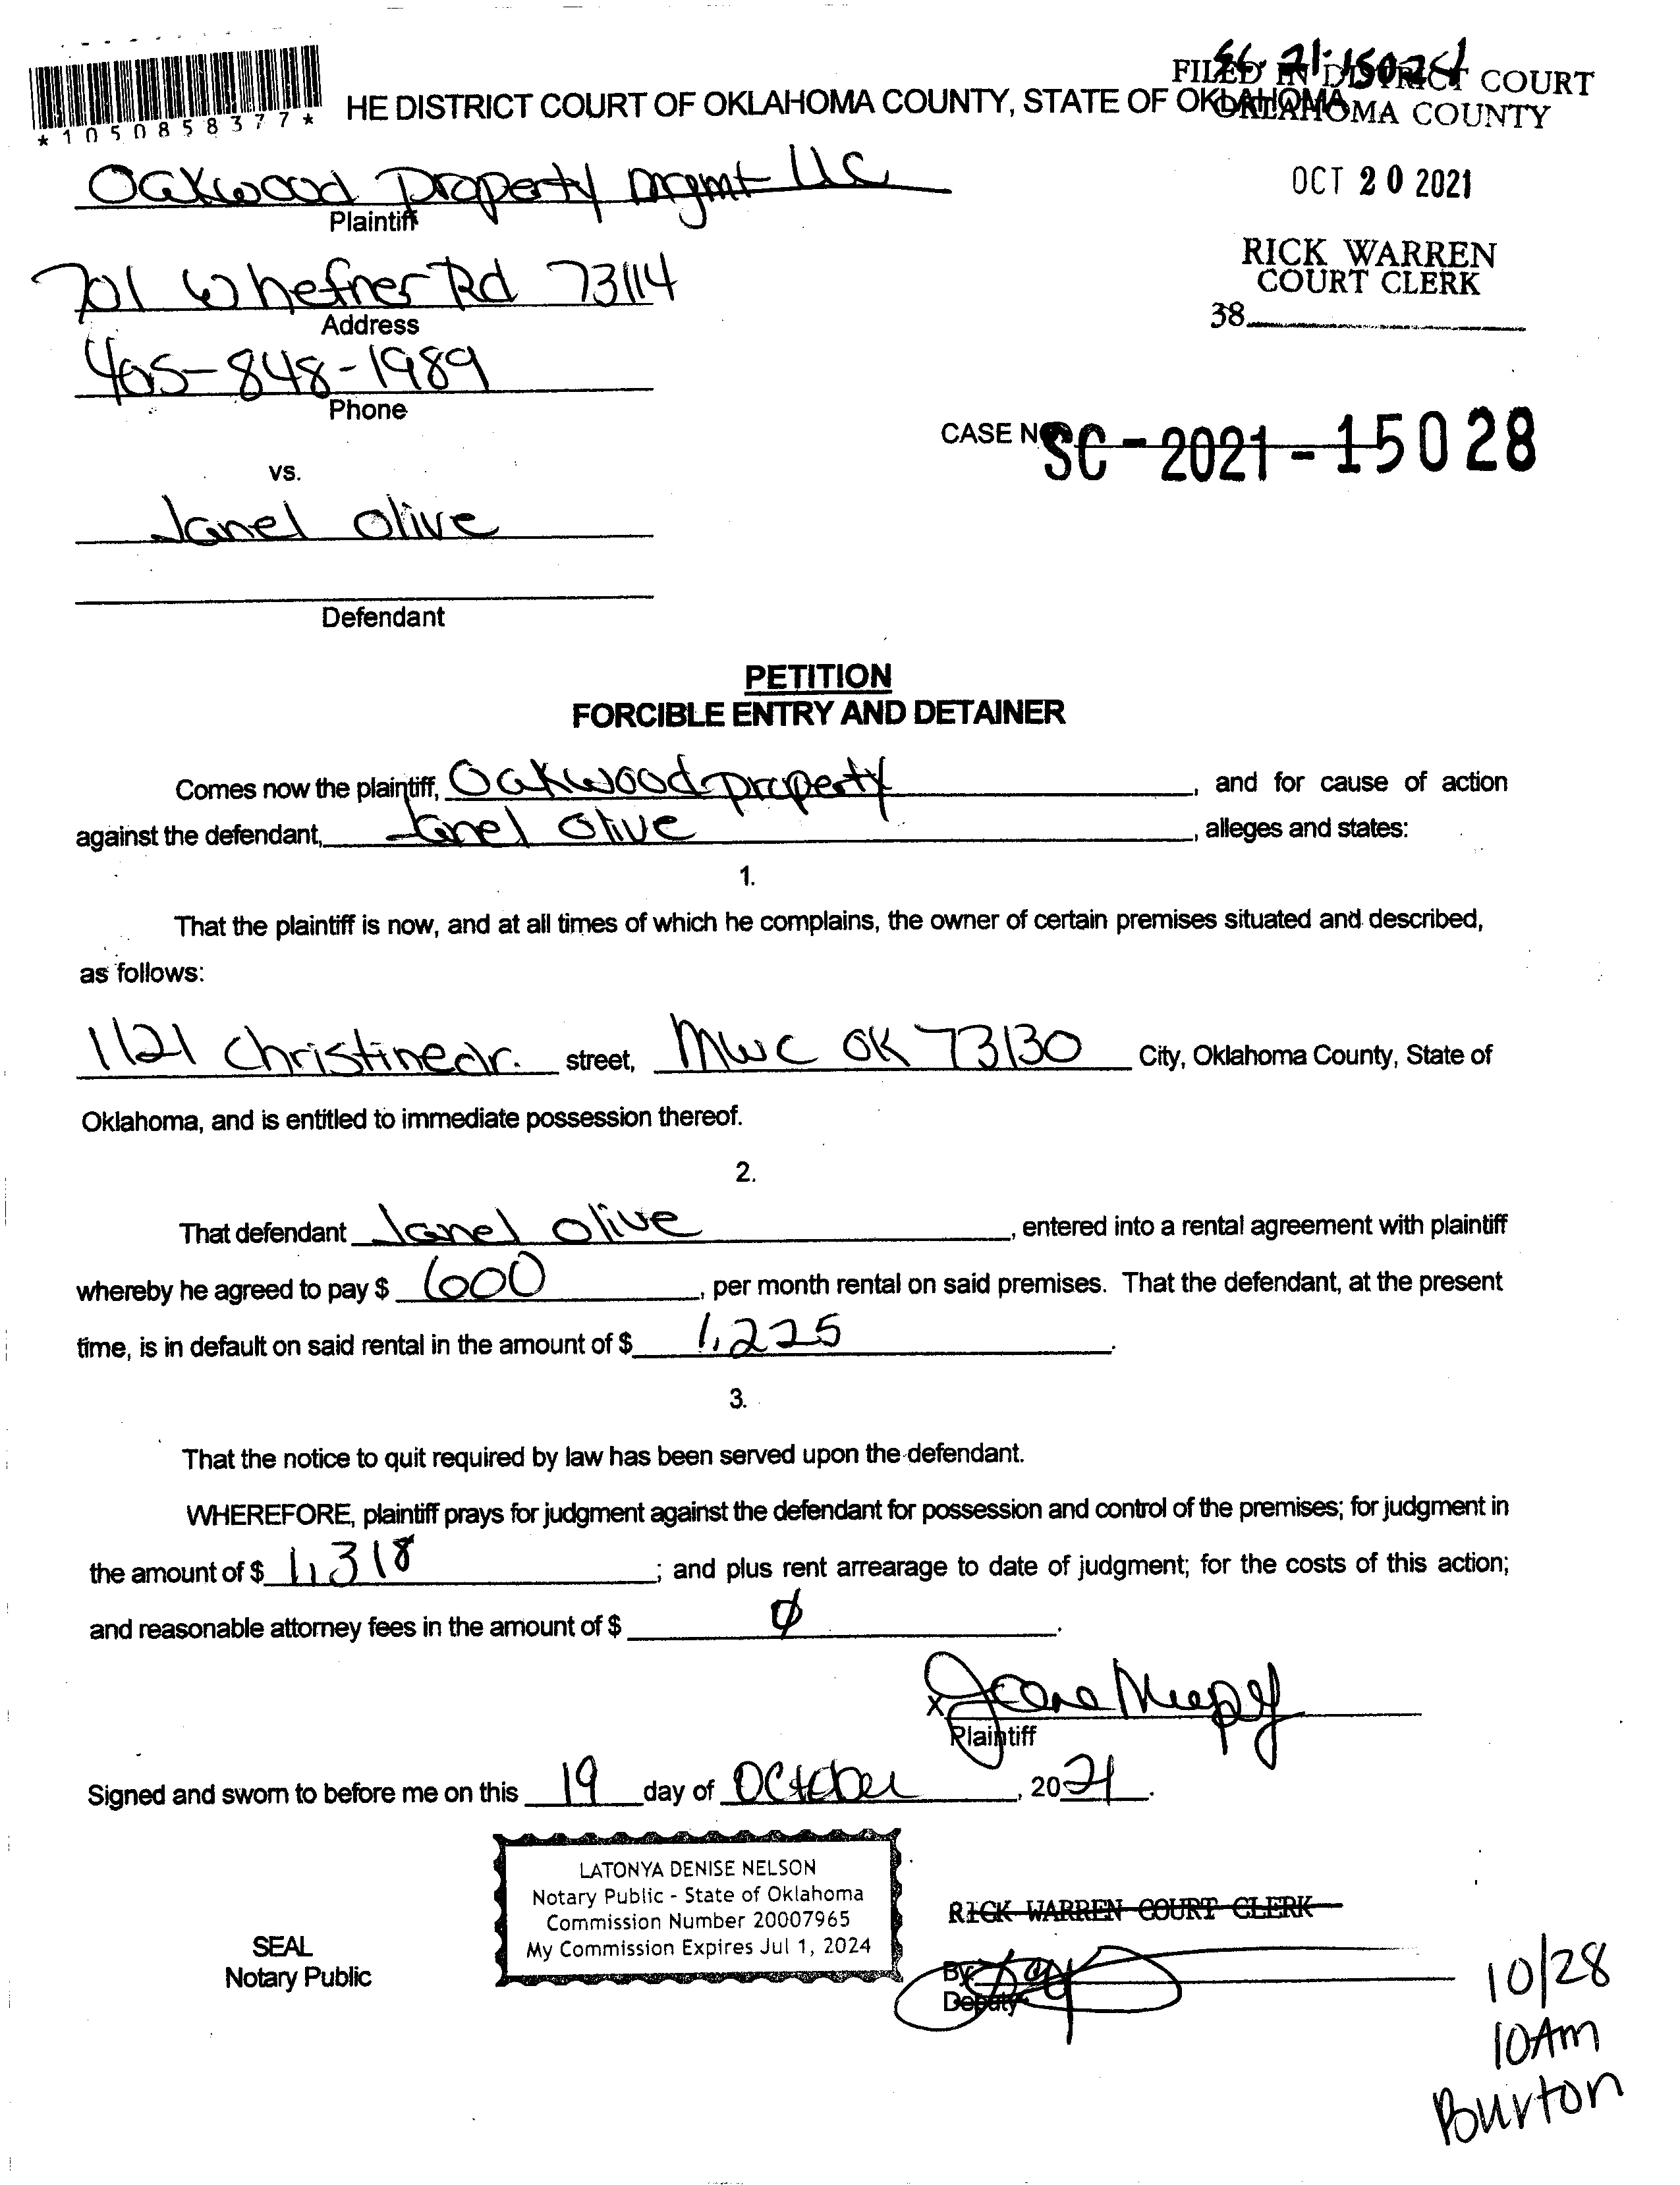 FILED IN DISTRICT COURT
HE DISTRICT COURT OF OKLAHOMA COUNTY, STATE OF OKLAHOMA
OKLAHOMA COUNTY
*1050858377*
Oakwood Property mgmt LLC
Plaintiff
OCT 20 2021
RICK WARREN
COURT CLERK
38
701 W hefner Rd 73114
Address
405-848-1989
Phone
CASE NO.
SC-2021-15028
vs.
Janel Olive
Defendant
PETITION
FORCIBLE ENTRY AND DETAINER
Comes now the plaintiff, Oakwood property, and for cause of action
against the defendant, Janel Olive, alleges and states:
1.
That the plaintiff is now, and at all times of which he complains, the owner of certain premises situated and described,
as follows:
1121 Christine dr. street, MWC OK 73130 City, Oklahoma County, State of
Oklahoma, and is entitled to immediate possession thereof.
2.
That defendant Janel Olive, entered into a rental agreement with plaintiff
whereby he agreed to pay $ 600, per month rental on said premises. That the defendant, at the present
time, is in default on said rental in the amount of $ 1,225.
3.
That the notice to quit required by law has been served upon the defendant.
WHEREFORE, plaintiff prays for judgment against the defendant for possession and control of the premises; for judgment in
the amount of $ 1,318; and plus rent arrearage to date of judgment; for the costs of this action;
and reasonable attorney fees in the amount of $ ∅.
X
Plaintiff
Signed and sworn to before me on this 19 day of October, 2021.
LATONYA DENISE NELSON
Notary Public - State of Oklahoma
Commission Number 20007965
My Commission Expires Jul 1, 2024
SEAL
Notary Public
RICK WARREN COURT CLERK
By
Deputy
10/28
10Am
Burton